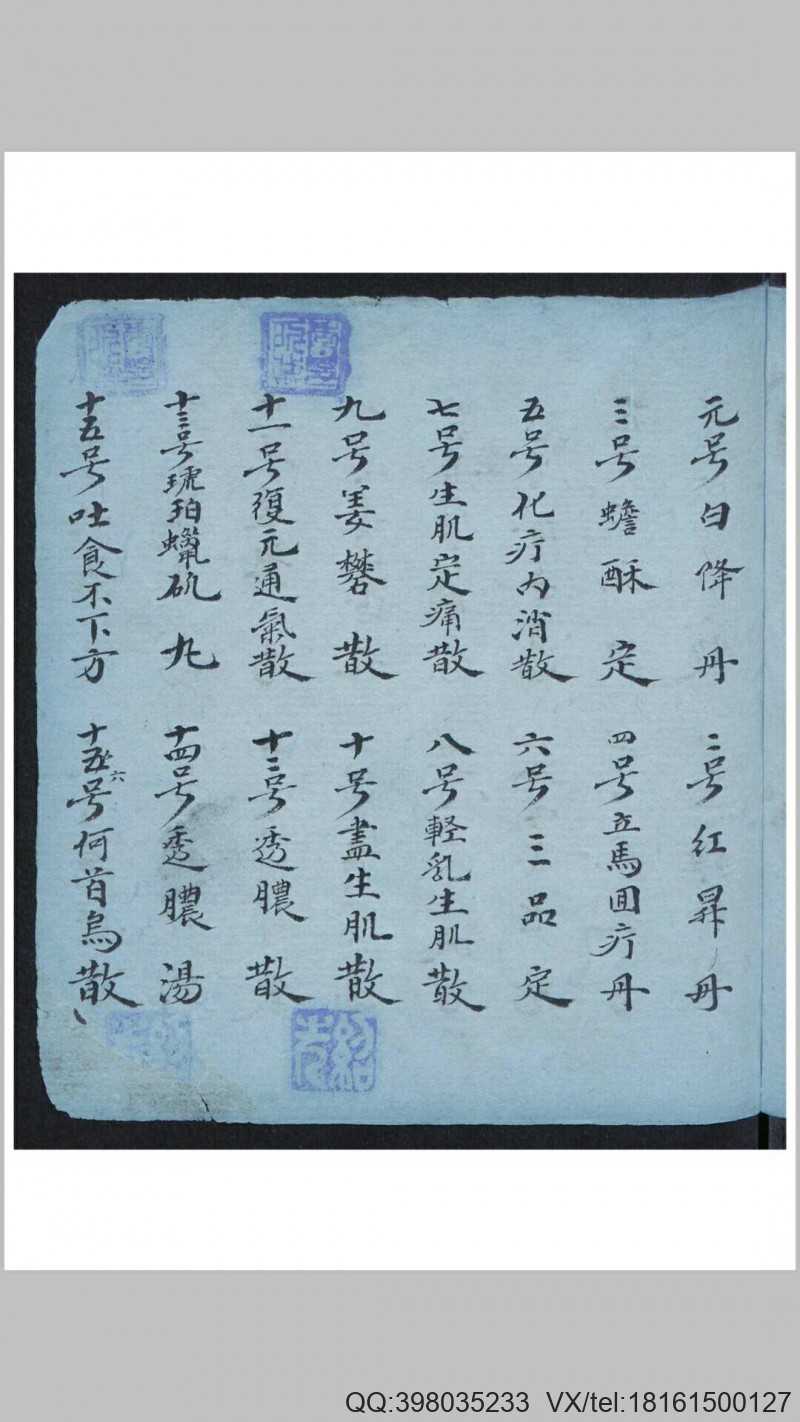 元号白降丹 二号红昇丹
三号蟾酥定 四号立馬回疔丹
五号化疔内消散 六号三品定
七号生肌定痛散 八号軽乳生肌散
九号姜礬散 十号盡生肌散
十一号復元通氣散 十二号透膿散
十三号琥珀蠟矾丸 十四号透膿湯
十五号吐食不下方 十五六号何首烏散
QQ:398035233 VX/tel:18161500127